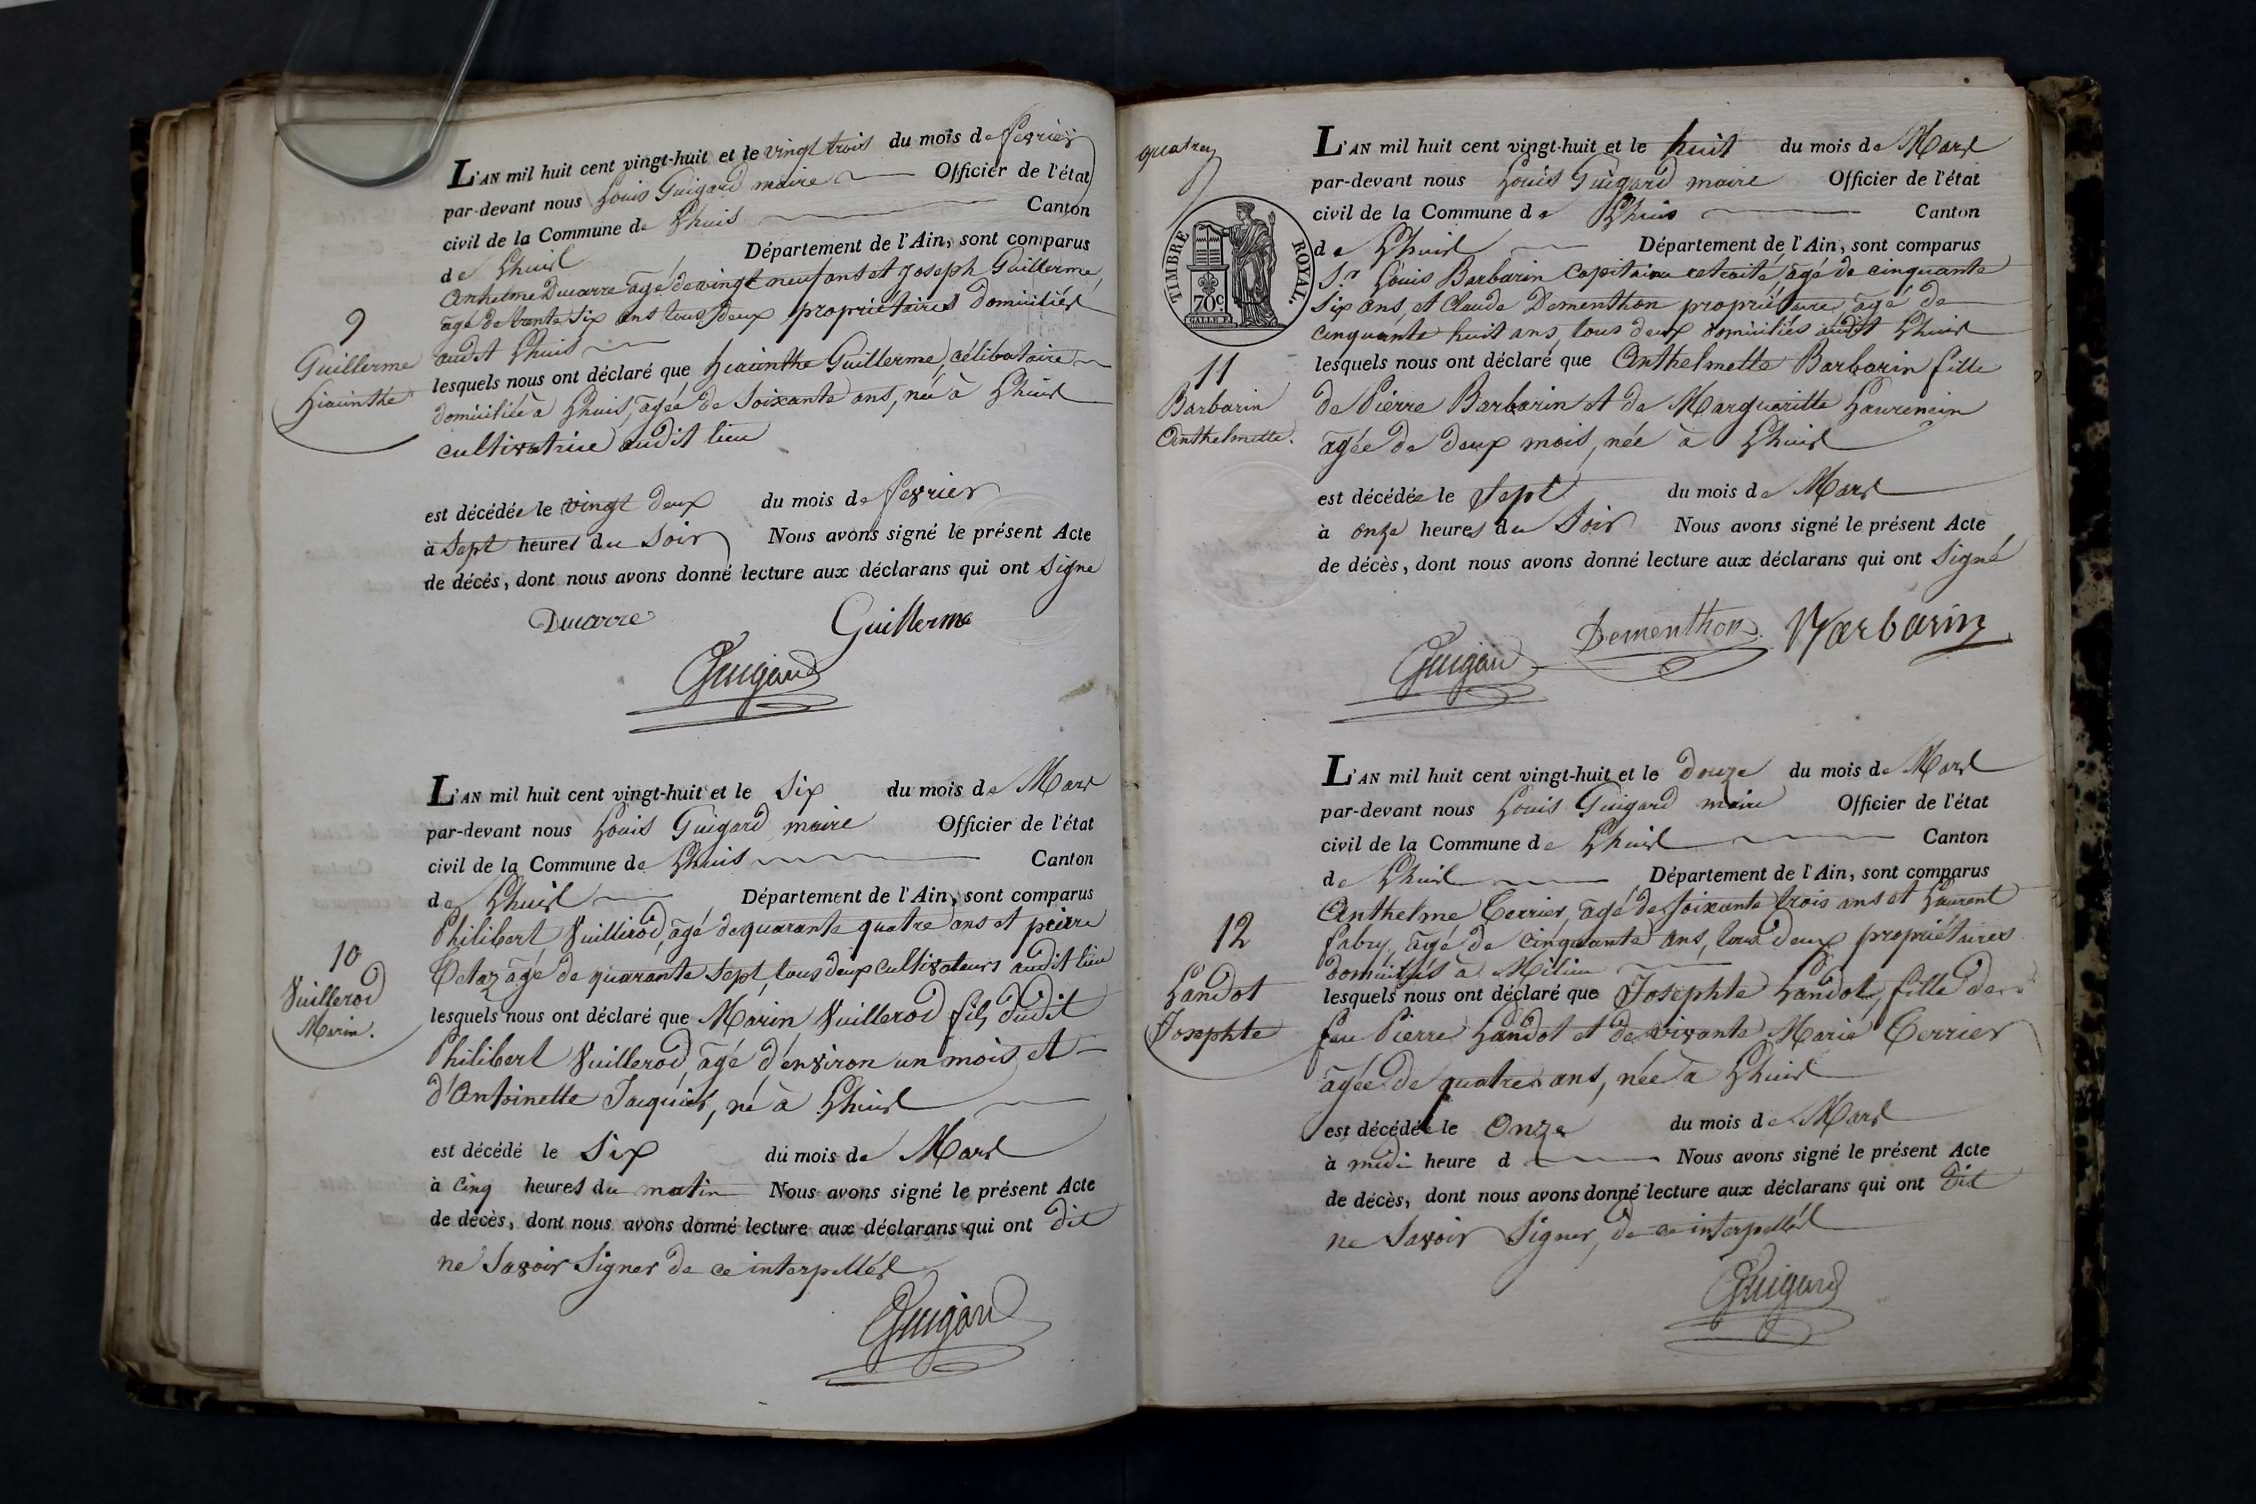 L'AN mil huit cent vingt-huit et le vingt trois du mois de fevrier
par-devant nous Louis Guigard maire Officier de l'état
civil de la Commune de Lhuis Canton
de Lhuis Département de l'Ain, sont comparus
Anthelme Ducarre agé de vingt neuf ans et Joseph Guillerme
agé de trente six ans tous deux propriétaires domiciliés
audit Lhuis
9
Guillerme
Hiacinthe
lesquels nous ont déclaré que hiacinthe Guillerme, célibataire
domiciliée à Lhuis, agée de Soixante ans, née à Lhuis
cultivatrice audit lieu
est décédée le vingt deux du mois de fevrier
à Sept heures du Soir Nous avons signé le présent Acte
de décés, dont nous avons donné lecture aux déclarans qui ont Signé
Ducarre Guillerme
Guigard
L'AN mil huit cent vingt-huit et le Six du mois de Mars
par-devant nous Louis Guigard maire Officier de l'état
civil de la Commune de Lhuis Canton
de Lhuis Département de l'Ain, sont comparus
Philibert Vuillerod, agé de quarante quatre ans et pierre
agé de quarante Sept, tous deux cultivateurs audit lieu
10
Vuillerod
Marin.
lesquels nous ont déclaré que Marin Vuillerod fils dudit
Philibert Vuillerod agé d'environ un mois et
d'Antoinette Jacquier, né à Lhuis
est décédé le Six du mois de Mars
à Cinq heures du matin Nous avons signé le présent Acte
de décès, dont nous avons donné lecture aux déclarans qui ont dit
ne Savoir Signer de ce interpellés
Guigard
quatre
TIMBRE ROYAL.
70c
L'AN mil huit cent vingt-huit et le huit du mois de Mars
par-devant nous Louis Guigard maire Officier de l'état
civil de la Commune de Lhuis Canton
de Lhuis Département de l'Ain, sont comparus
S.r Louis Barbarin Capitaine retraité, agé de cinquante
Six ans, et Claude Dementhon propriétaire, agé de
cinquante huit ans, tous deux domiciliés audit Lhuis
11
Barbarin
Anthelmette.
lesquels nous ont déclaré que Anthelmette Barbarin fille
de Pierre Barbarin et de Margueritte Laurencin
agée de deux mois, née à Lhuis
est décédée le Sept du mois de Mars
à onze heures du Soir Nous avons signé le présent Acte
de décès, dont nous avons donné lecture aux déclarans qui ont Signé
Guigard Dementhon Barbarin
L'AN mil huit cent vingt-huit et le douze du mois de Mars
par-devant nous Louis Guigard maire Officier de l'état
civil de la Commune de Lhuis Canton
de Lhuis Département de l'Ain, sont comparus
Anthelme Terrier, agé de Soixante trois ans et Laurent
fabry, agé de cinquante ans, tous deux propriétaires
domiciliés à Millieu
12
Landot
Josephte
lesquels nous ont déclaré que Josephte Landot, fille de
feu Pierre Landot et de vivante Marie Terrier
agée de quatre ans, née à Lhuis
est décédée le Onze du mois de Mars
à midi heure d Nous avons signé le présent Acte
de décès, dont nous avons donné lecture aux déclarans qui ont dit
ne Savoir Signer, de ce interpellés
Guigard